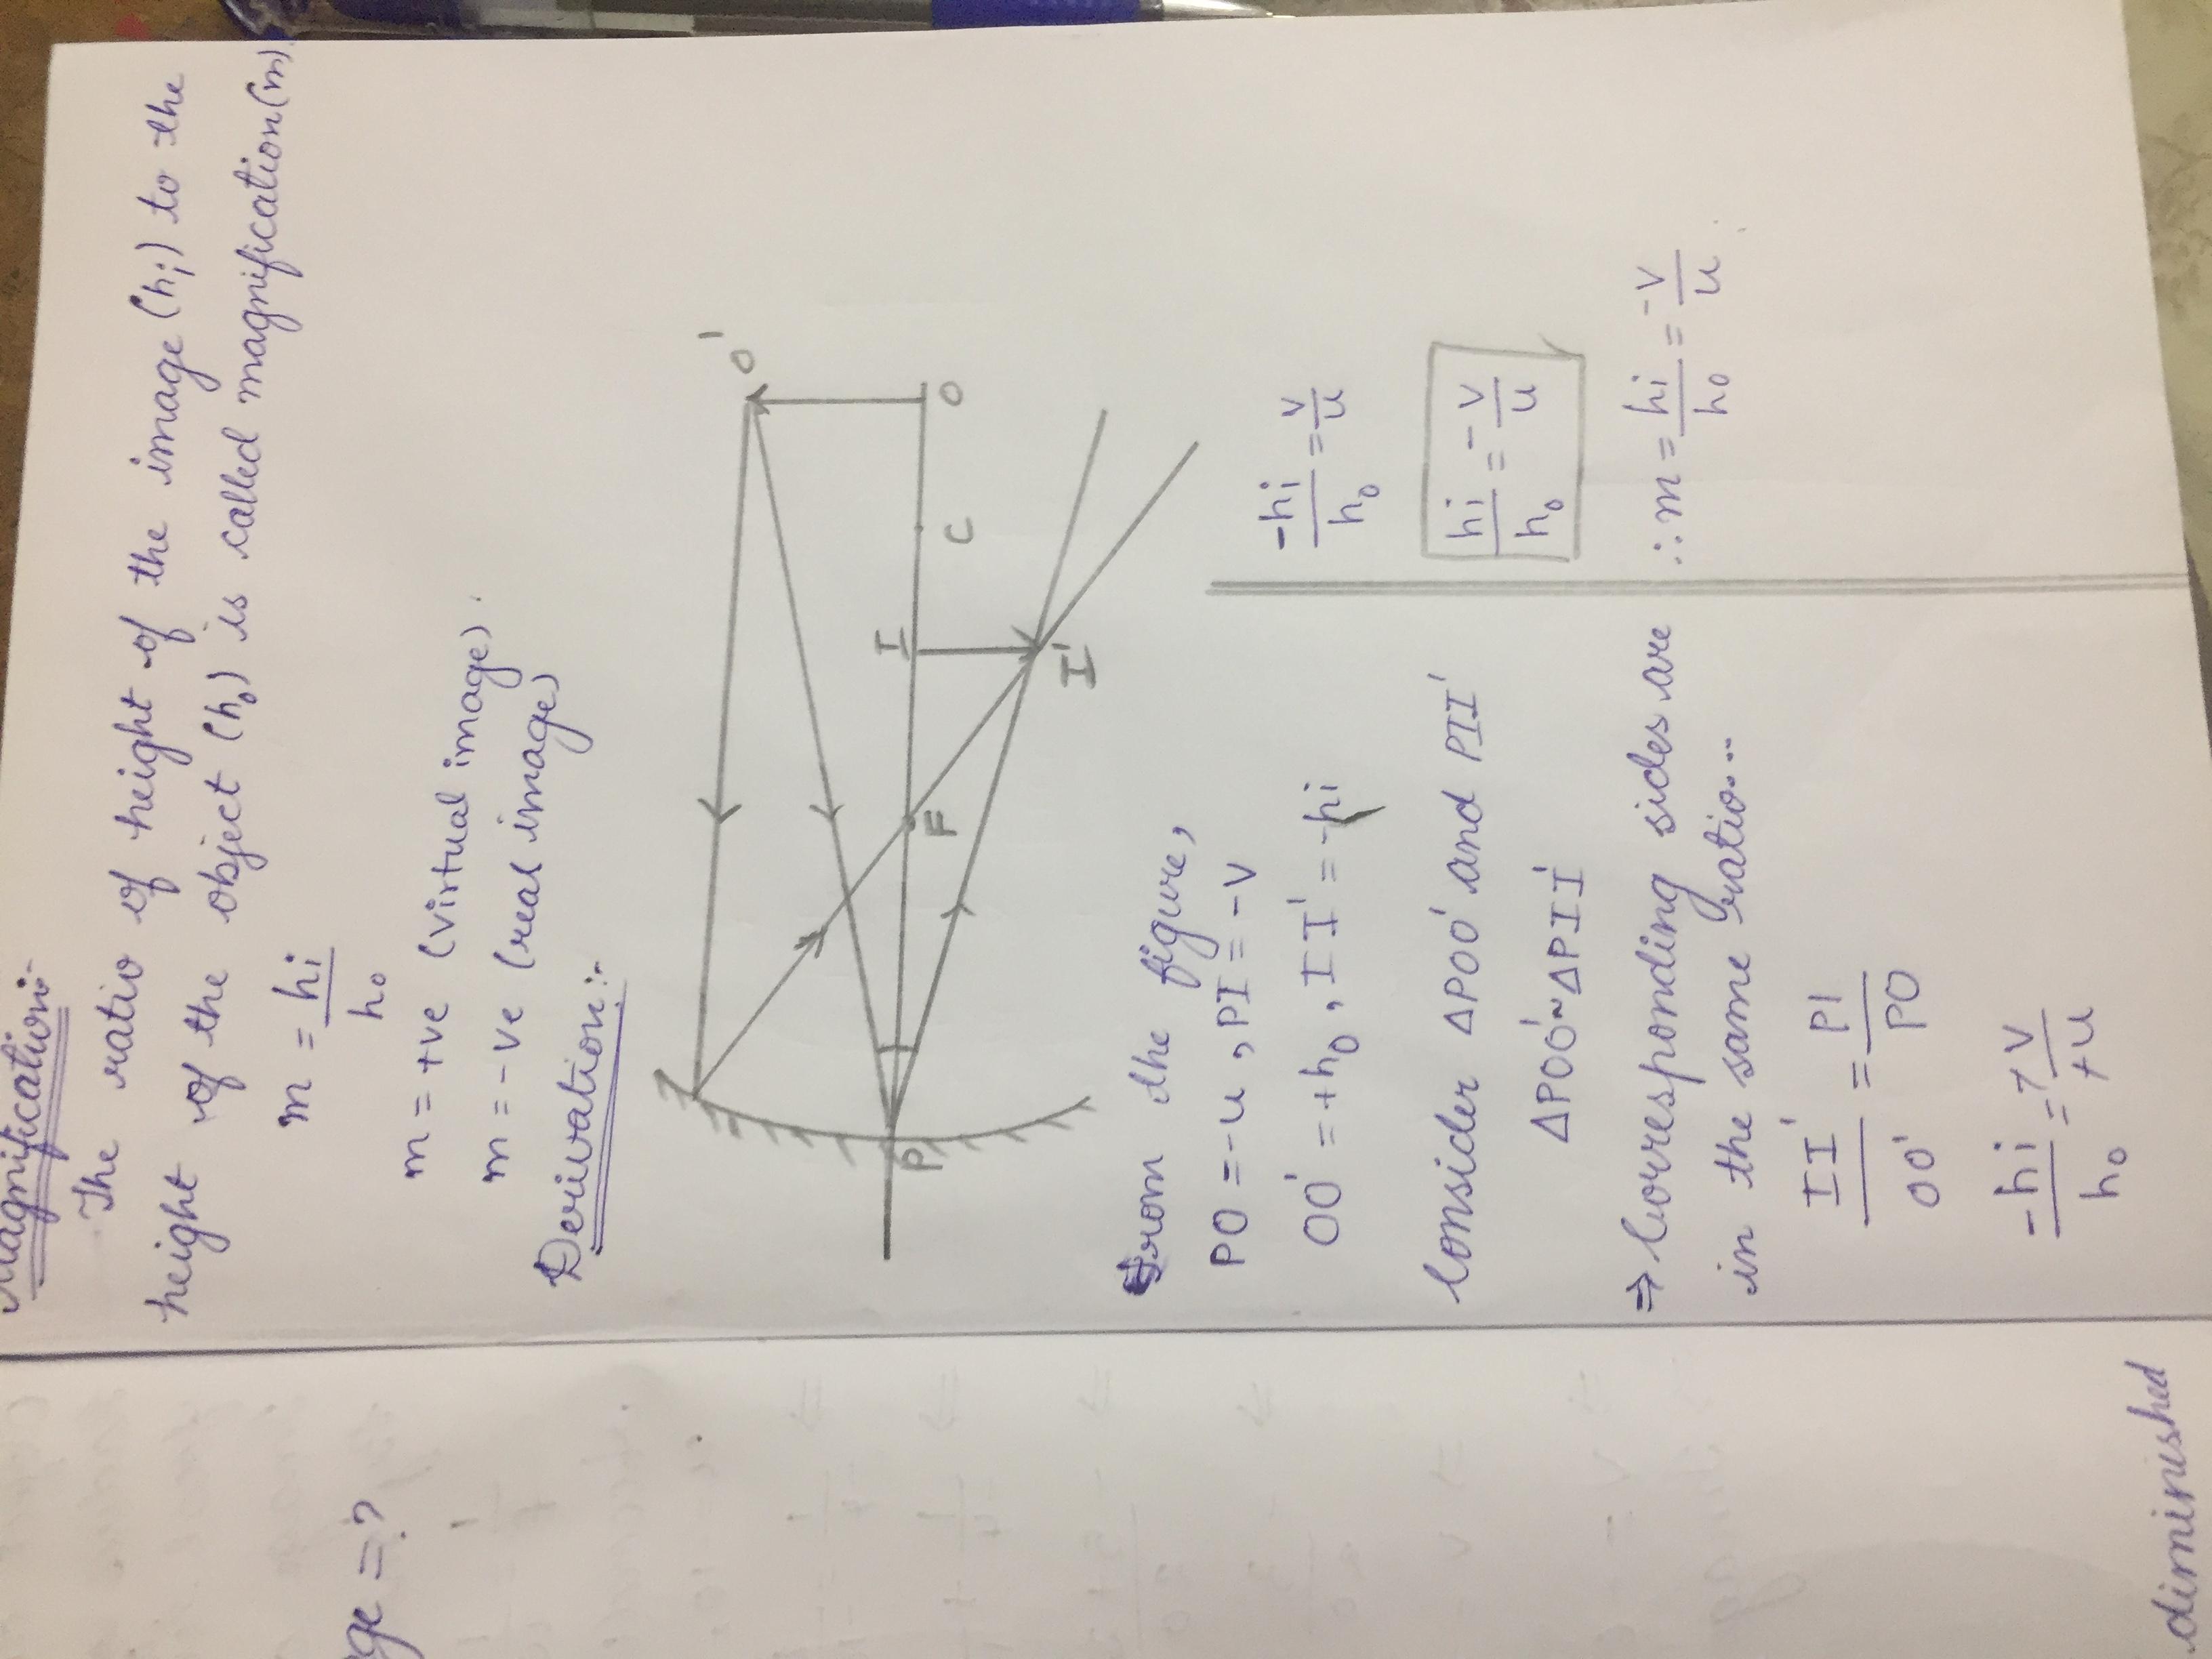 Magnification:-
The ratio of height of the image (hi) to the
height of the object (h₀) is called magnification (m).
m = hi/h₀
m = +ve (virtual image).
m = -ve (real image)
Derivation:-
O'
I C O
F
P
I'
From the figure,
PO = -u, PI = -v
OO' = +h₀, II' = -hi
Consider ΔPOO' and PII'
ΔPOO' ~ ΔPII'
⇒ Corresponding sides are
in the same ratio...
II'/OO' = PI/PO
-hi/h₀ = +v/+u
-hi/h₀ = v/u
hi/h₀ = -v/u
∴ m = hi/h₀ = -v/u.
ge = ?
diminished